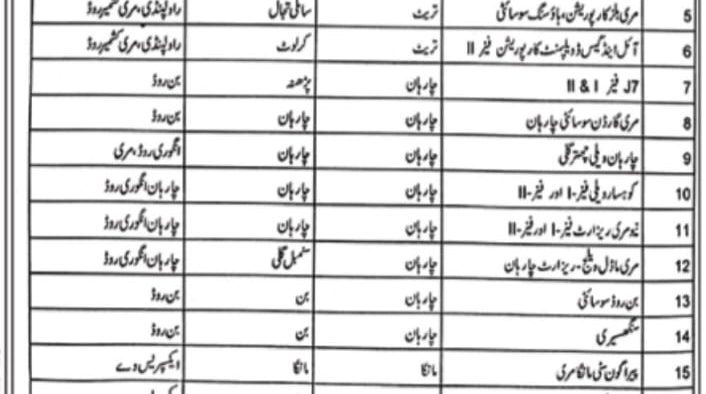 5 مری ہلز کارپوریشن، ہاؤسنگ سوسائٹی تریٹ سالی نتھال راولپنڈی، مری کشمیر روڈ
6 آئل اینڈ گیس ڈویلپمنٹ کارپوریشن فیز II تریٹ کرلوٹ راولپنڈی، مری کشمیر روڈ
7 J7 فیز I & II چارہان پڑھنہ بن روڈ
8 مری گارڈن سوسائٹی چارہان چارہان چارہان بن روڈ
9 چارہان ویلی چھتر گلی چارہان چارہان انگوری روڈ، مری
10 کوہسار ویلی فیز-I اور فیز-II چارہان چارہان چارہان انگوری روڈ
11 نیو مری ریزارٹ فیز-I اور فیز-II چارہان چارہان چارہان انگوری روڈ
12 مری ماڈل ویلج، ریزارٹ چارہان چارہان سنمبل گلی چارہان انگوری روڈ
13 بن روڈ سوسائٹی چارہان بن بن روڈ
14 سنگھسیری چارہان بن بن روڈ
15 پیراگون سٹی مانگا مری مانگا مانگا ایکسپریس وے